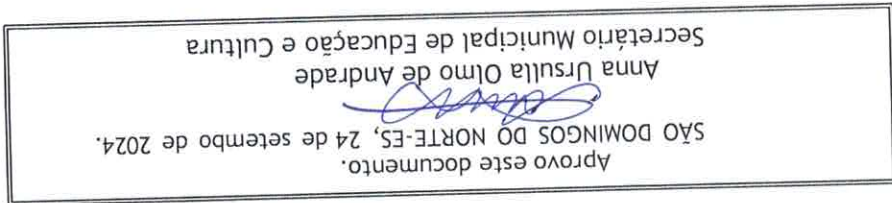 Aprovo este documento.
SÃO DOMINGOS DO NORTE-ES, 24 de setembo de 2024.
Anna Ursulla Olmo de Andrade
Secretário Municipal de Educação e Cultura